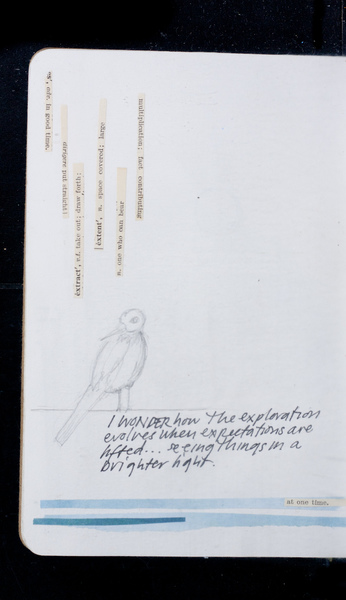 in good time.
put straight:
extract', v.t. take out; draw forth:
extent', n. space covered; large
n. one who can bear
multiplication; fact contributing
I WONDER how The exploration
evolves when expectations are
lifted... seeing things in a
brighter light.
at one time.